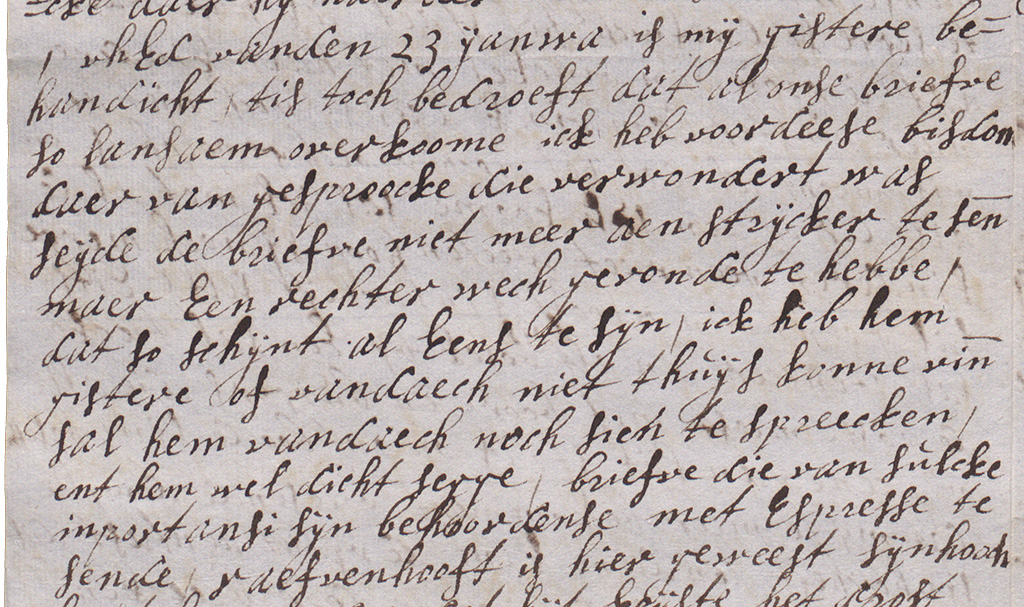 , uhEd vanden 23 ijanwa is mij gistere be-
handicht, tis toch bedroeft dat al onse briefve
so lansaem overkoome ick heb voor deese bisdom
daer van gesproocke die verwondert was
seijde de briefve niet meer aen strijcker te sen̄
maer Een rechter wech gevonde te hebbe,
dat so schijnt al Eens te sijn, ick heb hem
gistere of vandaech niet thuijs konne vin̄
sal hem vandaech noch sien te spreecken,
ent hem wel dicht segge, briefve die van sulcke
inportansi sijn behoordense met Espresse te
sende, raefvenhooft is hier geweest sijnhooch
het